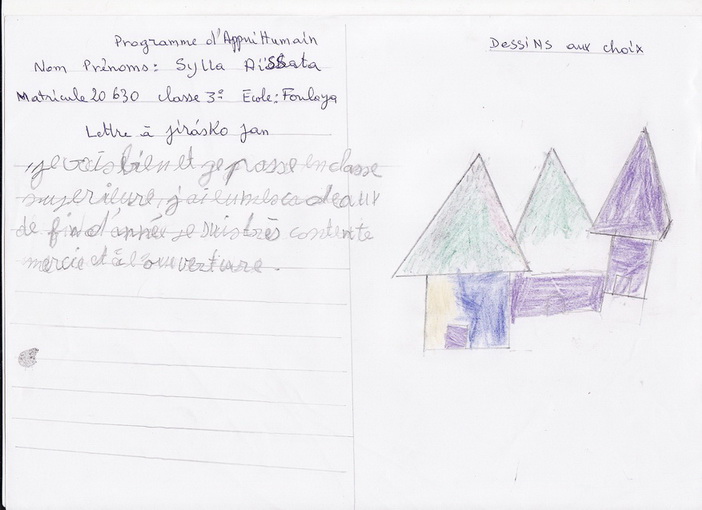 Programme d'Appui Humain
Nom Prénoms: Sylla Aïssata
Matricule 20 630 classe 3e Ecole: Fouloya
Lettre à jirásko jan
je vais bien et je passe en classe
superieure, j'ai eu mes cadeaux
de fin d'année je suis très contente
mercie et à l'ouverture.
Dessins aux choix